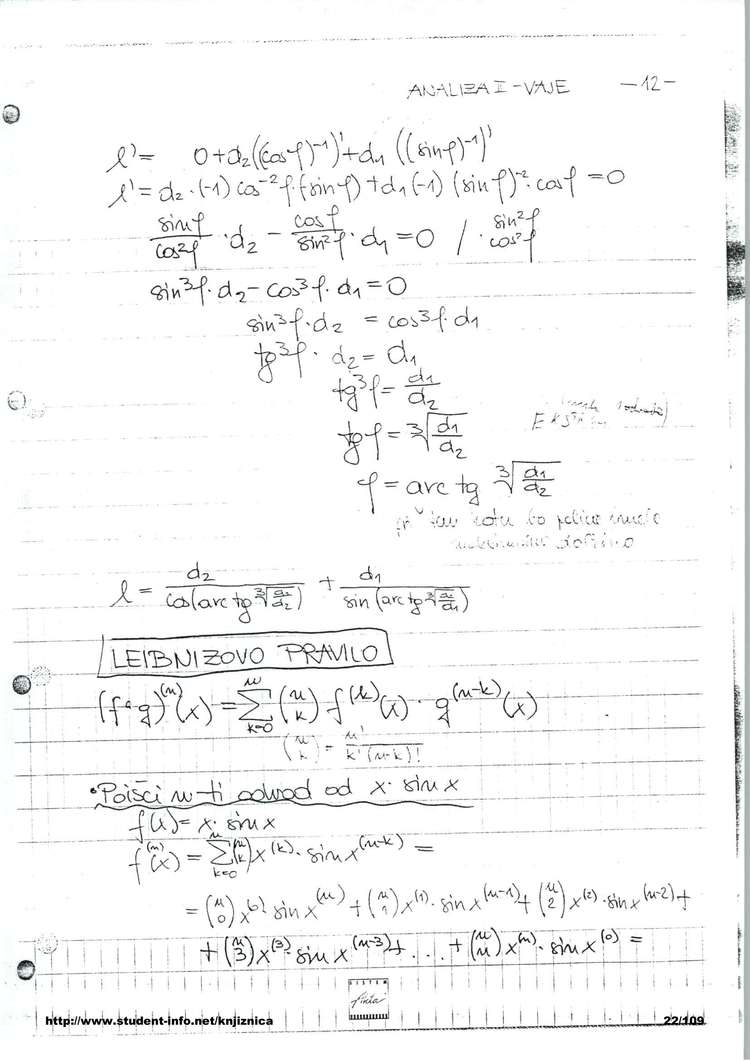 ANALIZA II - VAJE -12-
l' = 0 + d₂((cos φ)⁻¹)' + d₁((sin φ)⁻¹)'
l' = d₂ · (-1) cos⁻² φ · (-sin φ) + d₁ (-1) (sin φ)⁻² · cos φ = 0
sin φ / cos² φ · d₂ - cos φ / sin² φ · d₁ = 0 / · sin² φ cos² φ
sin³ φ · d₂ - cos³ φ · d₁ = 0
sin³ φ · d₂ = cos³ φ · d₁
tg³ φ · d₂ = d₁
tg³ φ = d₁/d₂
tg φ = ∛(d₁/d₂)
φ = arc tg ∛(d₁/d₂)
kotu bo palica imela
l = d₂ / cos(arc tg ∛(d₁/d₂)) + d₁ / sin(arc tg ∛(d₁/d₂))
LEIBNIZOVO PRAVILO
(f · g)⁽ⁿ⁾(x) = Σₖ₌₀ⁿ (n k) f⁽ᵏ⁾(x) · g⁽ⁿ⁻ᵏ⁾(x)
(n k) = n! / k! (n-k)!
• Poišči n-ti odvod od x · sin x
f(x) = x · sin x
f⁽ⁿ⁾(x) = Σₖ₌₀ⁿ (n k) x⁽ᵏ⁾ · sin x⁽ⁿ⁻ᵏ⁾ =
= (n 0) x⁽⁰⁾ sin x⁽ⁿ⁾ + (n 1) x⁽¹⁾ · sin x⁽ⁿ⁻¹⁾ + (n 2) x⁽²⁾ · sin x⁽ⁿ⁻²⁾ +
+ (n 3) x⁽³⁾ · sin x⁽ⁿ⁻³⁾ + . . . + (n n) x⁽ⁿ⁾ · sin x⁽⁰⁾ =
SISTEM
finia
http://www.student-info.net/knjiznica 22/109